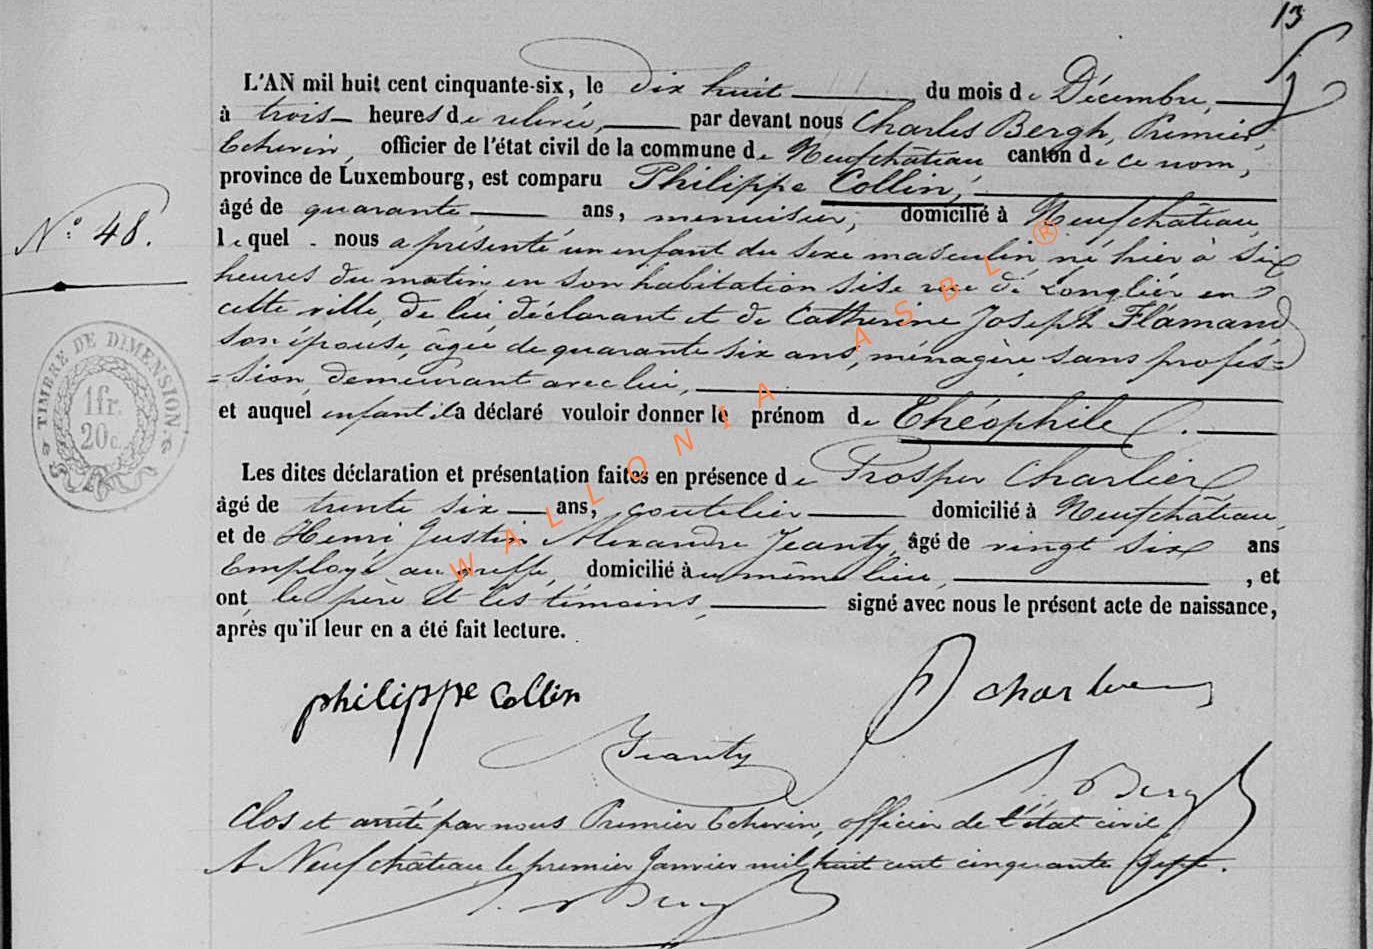 13
L'AN mil huit cent cinquante-six, le dix huit du mois de Décembre,
à trois heures de relevée, par devant nous Charles Bergh, Premier
Echevin, officier de l'état civil de la commune de Neufchâteau canton de ce nom,
province de Luxembourg, est comparu Philippe Collin,
âgé de quarante ans, menuisier, domicilié à Neufchâteau,
lequel nous a présenté un enfant du sexe masculin né hier à six
N° 48.
heures du matin en son habitation sise rue de Longlier en
cette ville, de lui déclarant et de Catherine Joseph Flamand
son épouse, âgée de quarante six ans, ménagère sans profes=
=sion demeurant avec lui,
et auquel enfant il a déclaré vouloir donner le prénom de Théophile.
TIMBRE DE DIMENSION
1fr.
20c.
Les dites déclaration et présentation faites en présence de Prosper Charlier
âgé de trente six ans, coutelier domicilié à Neufchâteau
et de Henri Justin Alexandre Jeanty, âgé de vingt six ans
Employé au greffe, domicilié au même lieu, , et
ont le père et les témoins, signé avec nous le présent acte de naissance,
après qu'il leur en a été fait lecture.
philippe Collin
P Charlier
Jeanty
Bergh
Clos et arrêté par nous Premier Echevin, officier de l'état civil
A Neufchâteau le premier Janvier mil huit cent cinquante sept.
Bergh
WALLONIA ASBL ®